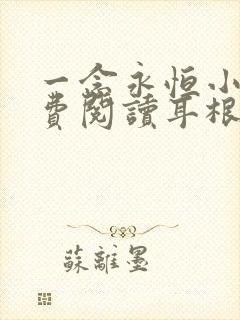 一念永恒小
費閱讀耳根
蘇離墨